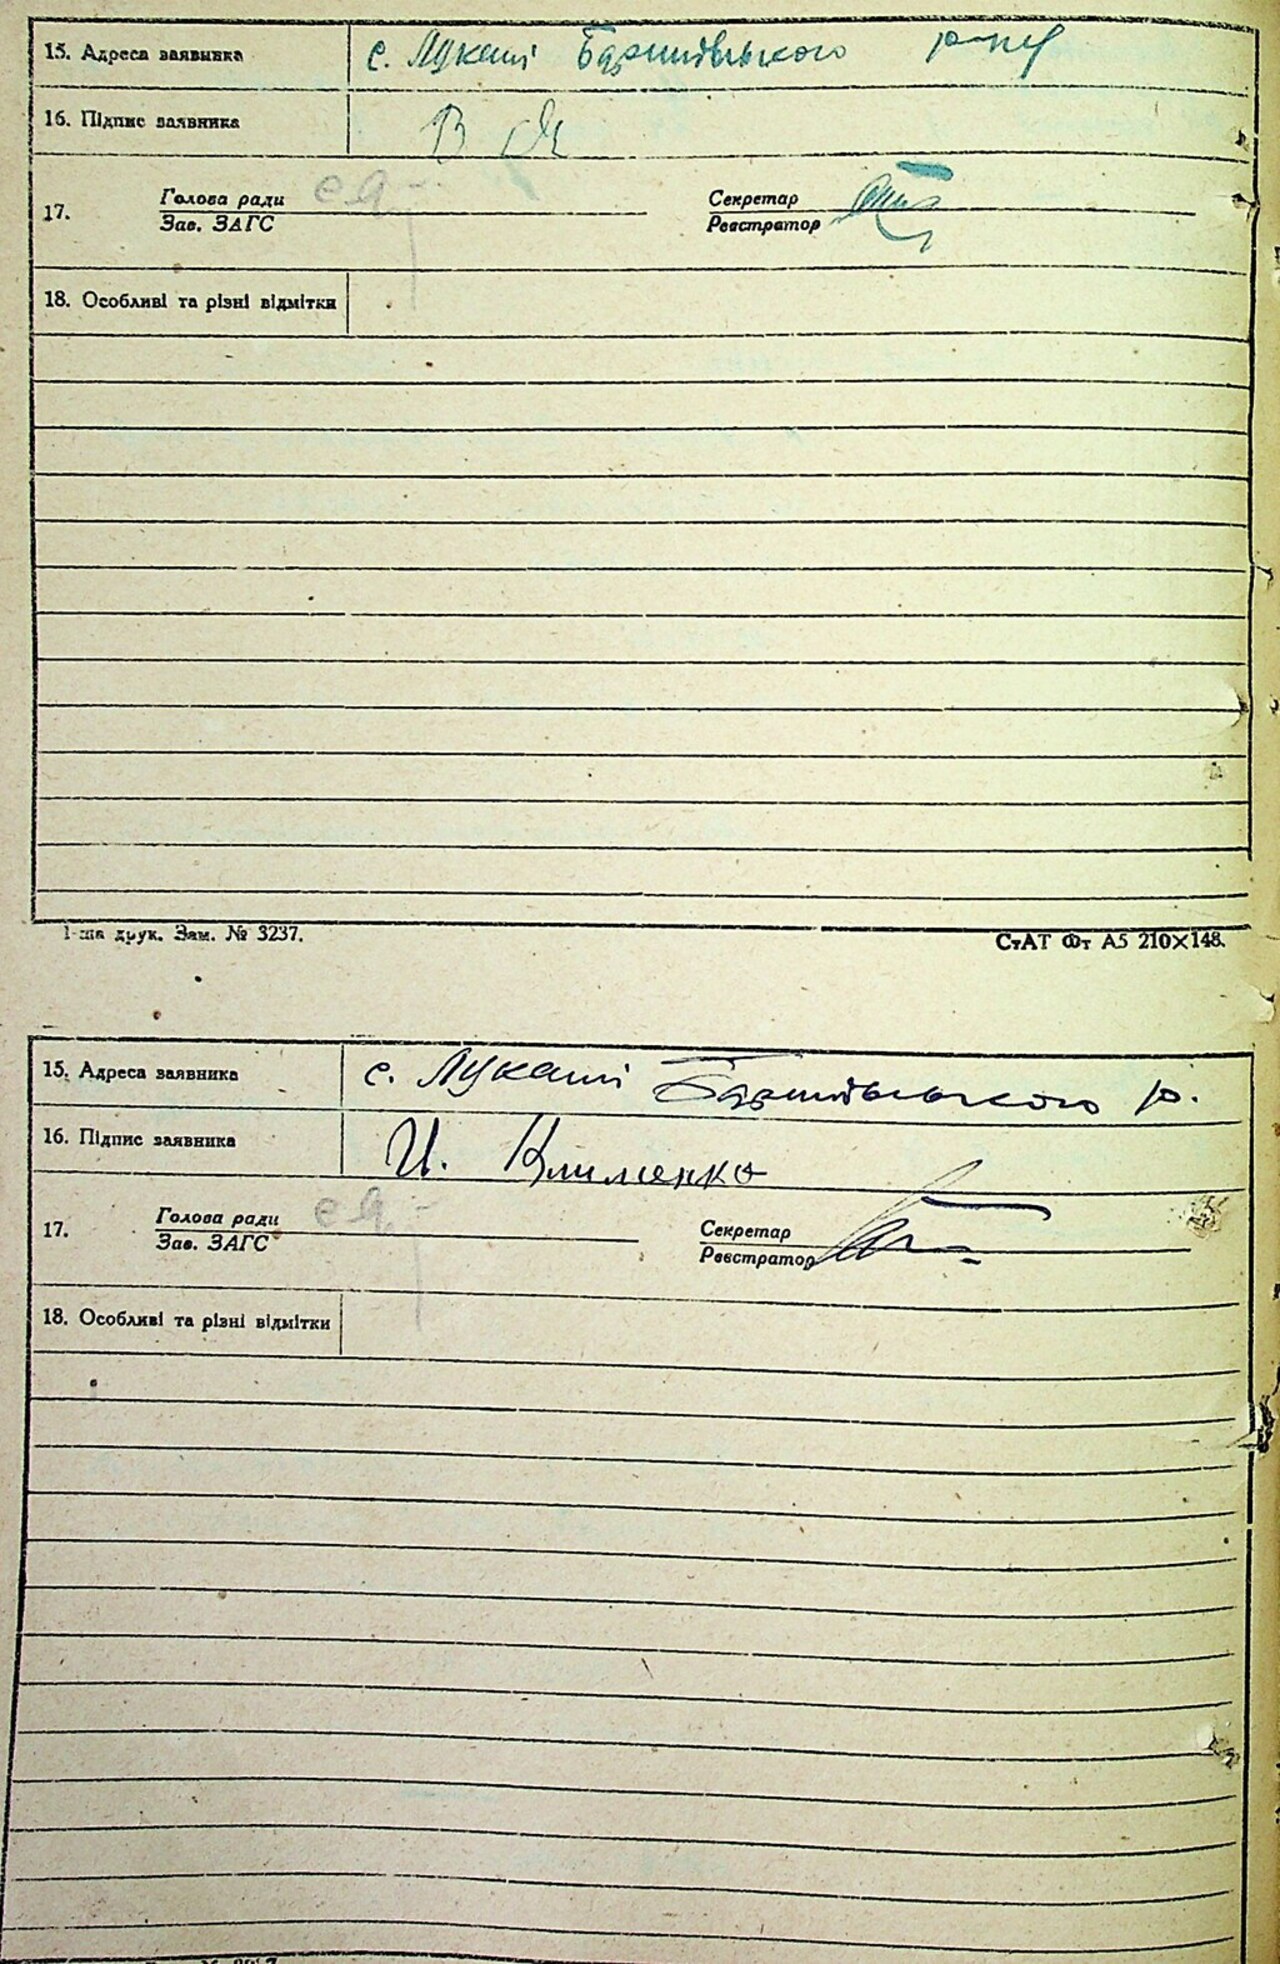 15. Адреса заявника с. Лукаші Баришівського р-ну
16. Підпис заявника В
17. Голова ради Секретар
Зав. ЗАГС Реєстратор
18. Особливі та різні відмітки
1-ша друк. Зам. № 3237. СтАТ Фт А5 210×148.
15. Адреса заявника с. Лукаші Баришівського р.
16. Підпис заявника И. Клименко
17. Голова ради Секретар
Зав. ЗАГС Реєстратор
18. Особливі та різні відмітки